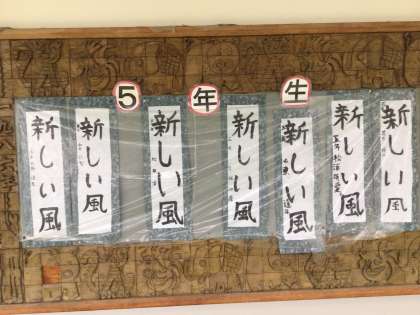 5年生
新しい風
新しい風
新しい風
新しい風
新しい風
新しい風
新しい風